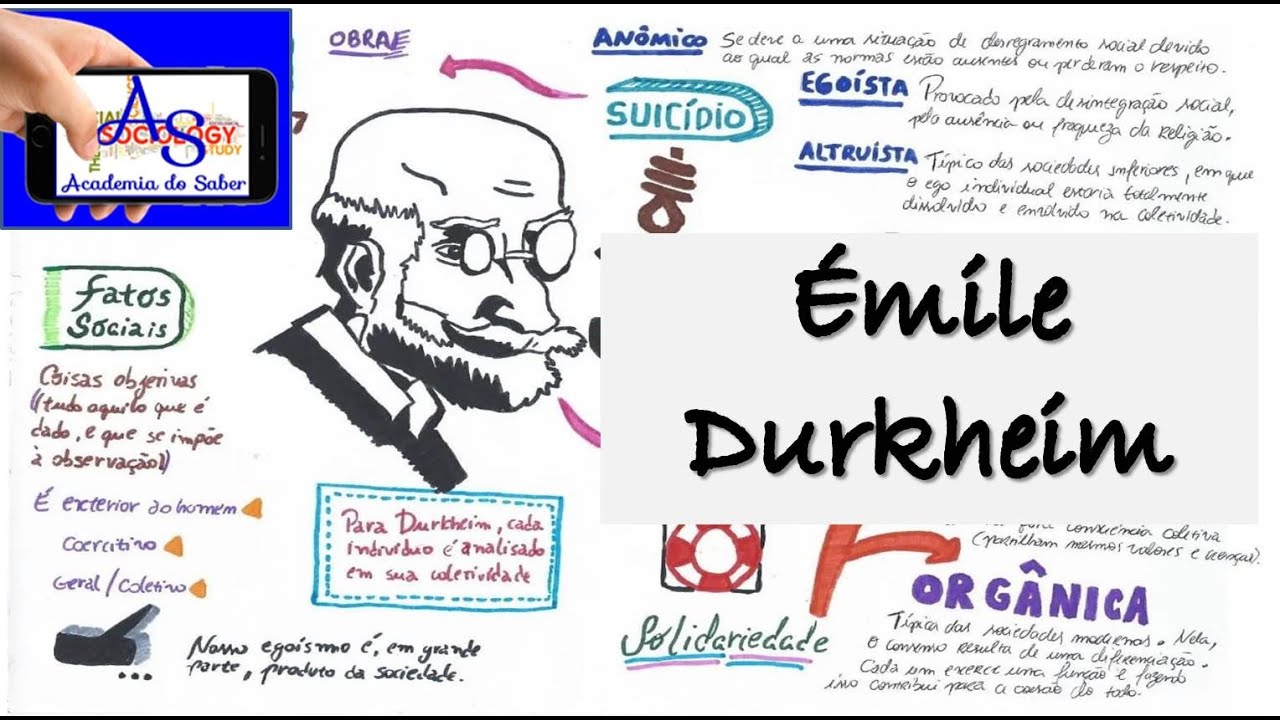 AS
SOCIOLOGY
STUDY
Academia do Saber
OBRAE
ANÔMICO
Se deve a uma situação de desregramento social devido
ao qual as normas estão ausentes ou perderam o respeito.
SUICÍDIO
EGOÍSTA
Provocado pela desintegração social,
pela ausência ou fraqueza da Religião.
ALTRUÍSTA
Típico das sociedades inferiores, em que
o ego individual estaria totalmente
dissolvido e envolvido na coletividade.
Émile
Durkheim
Fatos
Sociais
Coisas objetivas
(tudo aquilo que é
dado, e que se impõe
à observação)
É exterior ao homem
Coercitivo
Geral/Coletivo
Para Durkheim, cada
indivíduo é analisado
em sua coletividade
Nosso egoísmo é, em grande
parte, produto da sociedade.
...
consciência coletiva
(partilham mesmos valores e crenças).
ORGÂNICA
Solidariedade
Típica das sociedades modernas. Nela,
o consenso resulta de uma diferenciação.
Cada um exerce uma função e fazendo
isso contribui para a coesão do todo.